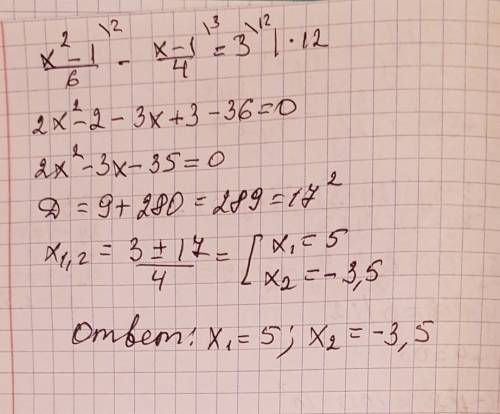 (x² - 1)/6 \2 - (x - 1)/4 \3 = 3 \12 | · 12
2x² - 2 - 3x + 3 - 36 = 0
2x² - 3x - 35 = 0
Д = 9 + 280 = 289 = 17²
x₁,₂ = (3 ± 17)/4 = [ x₁ = 5
x₂ = - 3,5
Ответ: x₁ = 5; x₂ = -3,5